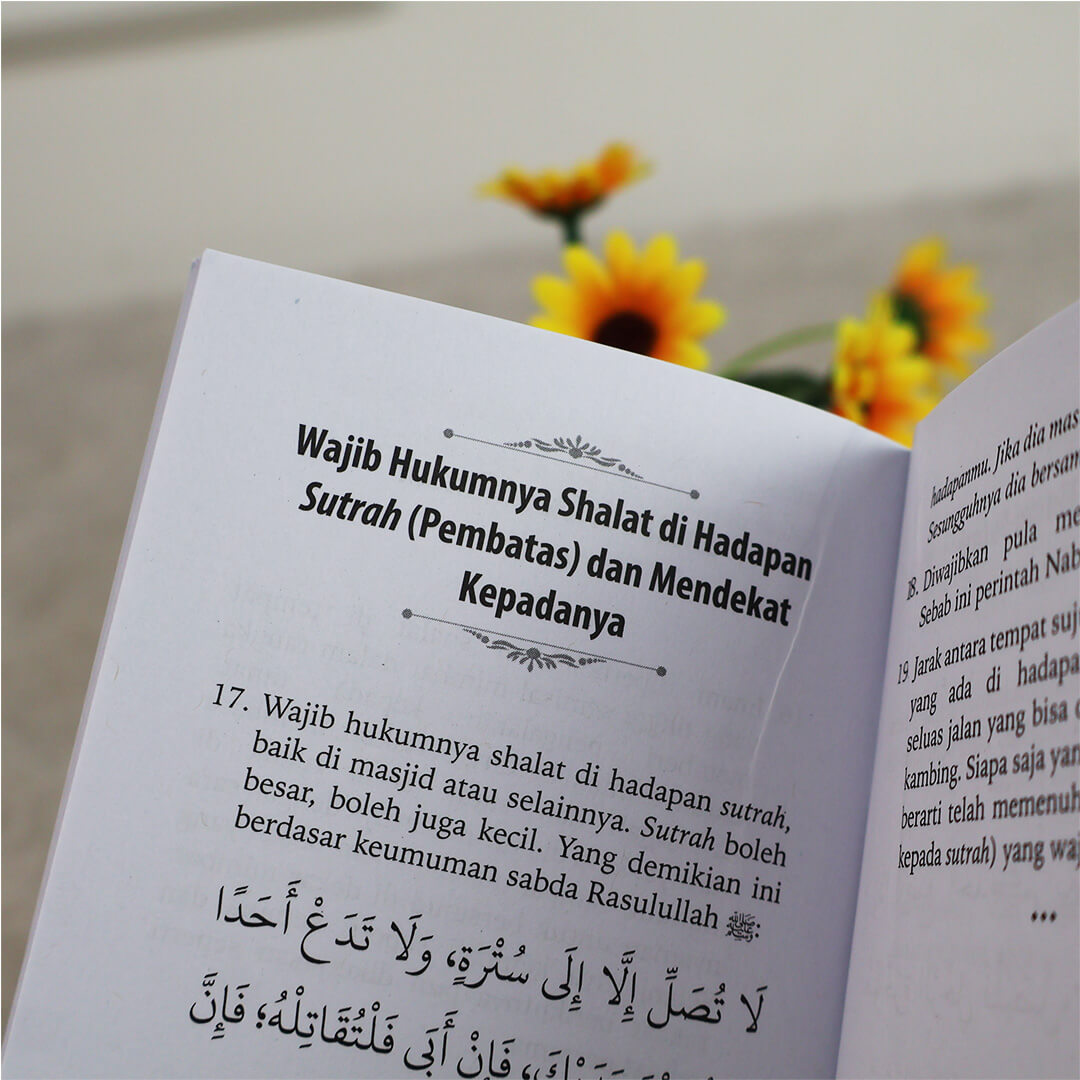 Wajib Hukumnya Shalat di Hadapan
Sutrah (Pembatas) dan Mendekat
Kepadanya
17. Wajib hukumnya shalat di hadapan sutrah,
baik di masjid atau selainnya. Sutrah boleh
besar, boleh juga kecil. Yang demikian ini
berdasar keumuman sabda Rasulullah ﷺ:
لَا تُصَلِّ إِلَّا إِلَى سُتْرَةٍ، وَلَا تَدَعْ أَحَدًا
فَإِنْ أَبَى فَلْتُقَاتِلْهُ؛ فَإِنَّ
hadapanmu. Jika dia mas
Sesungguhnya dia bersam
18. Diwajibkan pula me
Sebab ini perintah Nab
19 Jarak antara tempat suju
yang ada di hadapa
seluas jalan yang bisa
kambing. Siapa saja yan
berarti telah memenuh
kepada sutrah) yang waj
•••